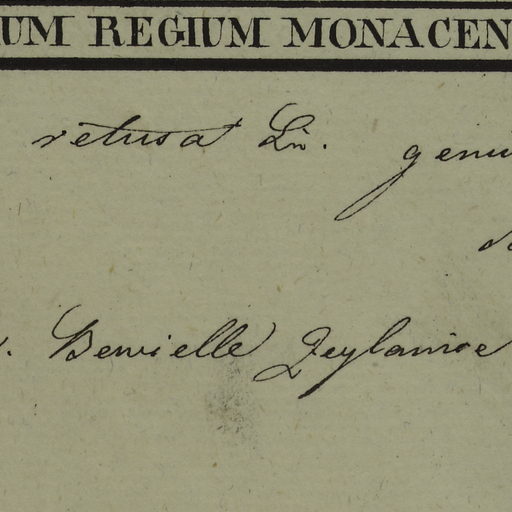 UM REGIUM MONACEN
retusa Lin. genu
. Bewielle Zeylanice